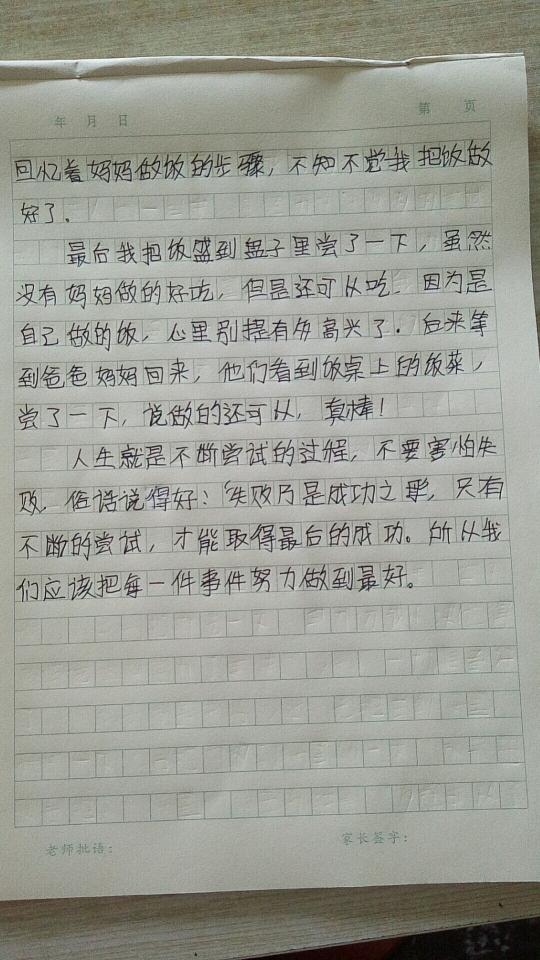 年 月 日
第 页
回忆着妈妈做饭的步骤，不知不觉我把饭做
好了.
最后我把饭盛到盘子里尝了一下，虽然
没有妈妈做的好吃，但是还可以吃．因为是
自己做的饭，心里别提有多高兴了．后来等
到爸爸妈妈回来，他们看到饭桌上的饭菜，
尝了一下，说做的还可以，真棒！
人生就是不断尝试的过程，不要害怕失
败．俗话说得好：“失败乃是成功之母，只有
不断的尝试，才能取得最后的成功。所以我
们应该把每一件事件努力做到最好。
老师批语：
家长签字：